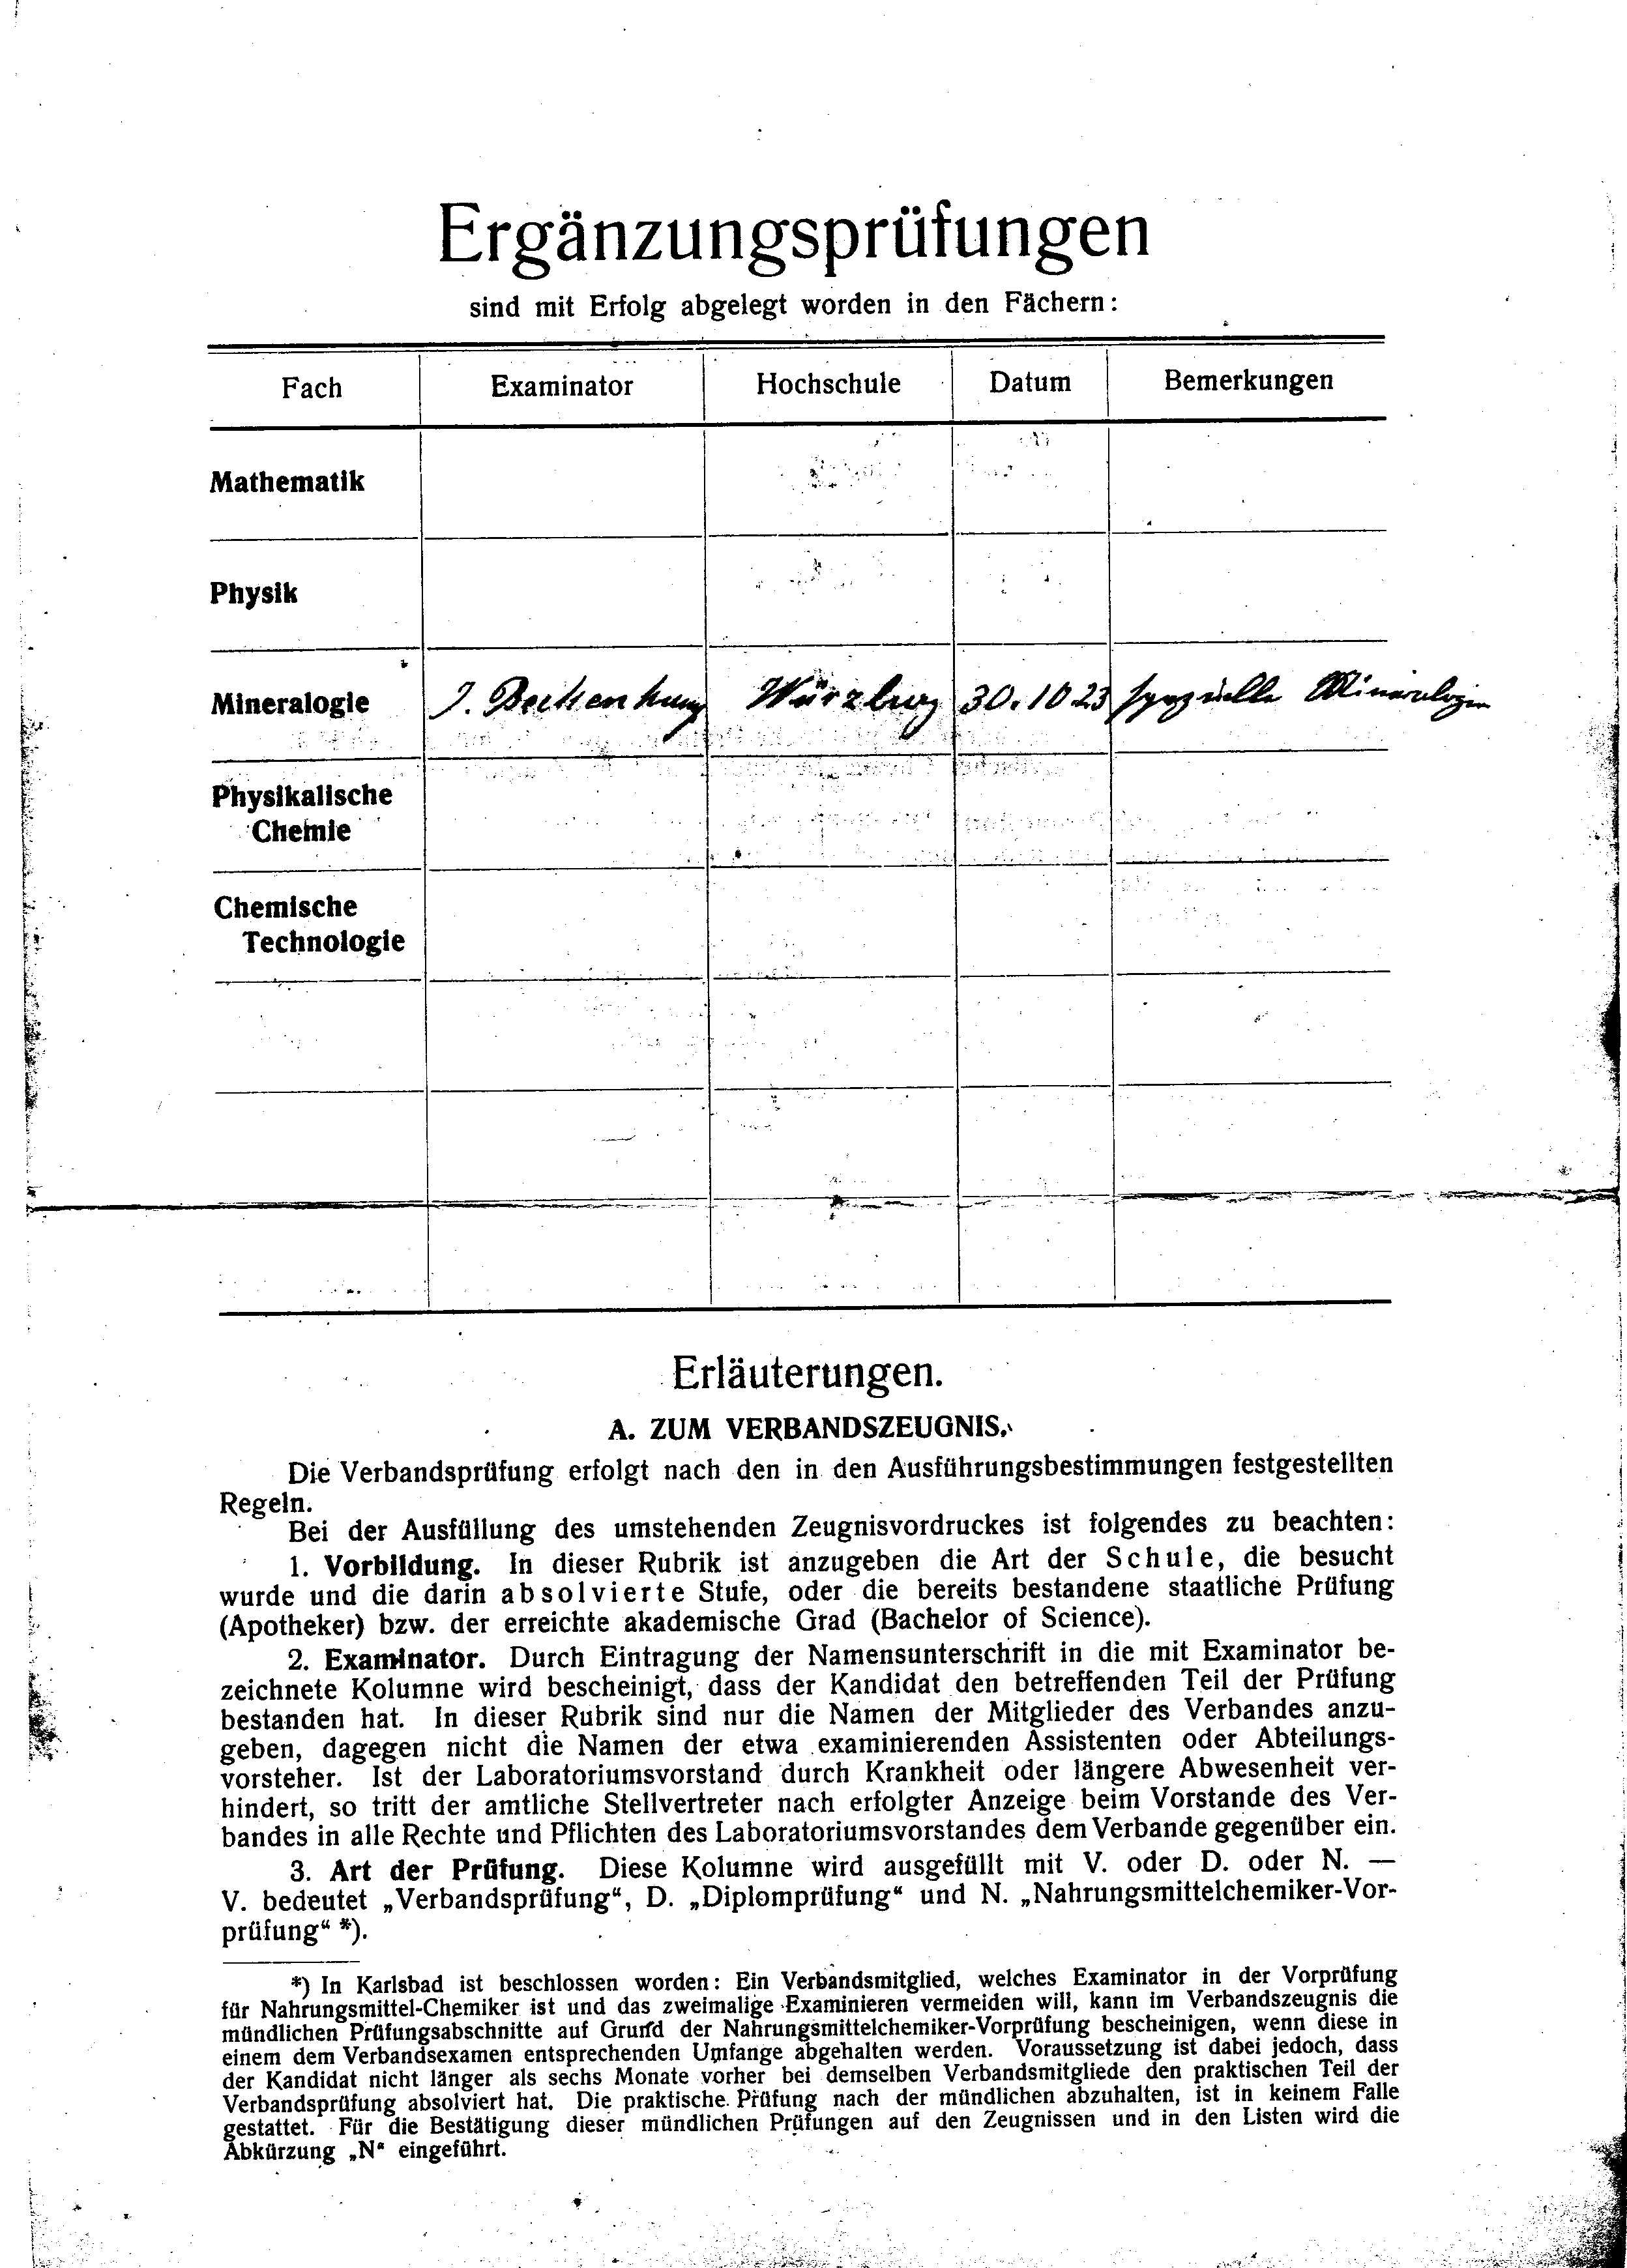 Ergänzungsprüfungen
sind mit Erfolg abgelegt worden in den Fächern:
Fach Examinator Hochschule Datum Bemerkungen
Mathematik
Physik
Mineralogie J. Beckenkamp Würzburg 30.10.23 spezielle Mineralogie
Physikalische
Chemie
Chemische
Technologie
Erläuterungen.
A. ZUM VERBANDSZEUGNIS.
Die Verbandsprüfung erfolgt nach den in den Ausführungsbestimmungen festgestellten
Regeln.
Bei der Ausfüllung des umstehenden Zeugnisvordruckes ist folgendes zu beachten:
1. Vorbildung. In dieser Rubrik ist anzugeben die Art der Schule, die besucht
wurde und die darin absolvierte Stufe, oder die bereits bestandene staatliche Prüfung
(Apotheker) bzw. der erreichte akademische Grad (Bachelor of Science).
2. Examinator. Durch Eintragung der Namensunterschrift in die mit Examinator be-
zeichnete Kolumne wird bescheinigt, dass der Kandidat den betreffenden Teil der Prüfung
bestanden hat. In dieser Rubrik sind nur die Namen der Mitglieder des Verbandes anzu-
geben, dagegen nicht die Namen der etwa examinierenden Assistenten oder Abteilungs-
vorsteher. Ist der Laboratoriumsvorstand durch Krankheit oder längere Abwesenheit ver-
hindert, so tritt der amtliche Stellvertreter nach erfolgter Anzeige beim Vorstande des Ver-
bandes in alle Rechte und Pflichten des Laboratoriumsvorstandes dem Verbande gegenüber ein.
3. Art der Prüfung. Diese Kolumne wird ausgefüllt mit V. oder D. oder N. —
V. bedeutet „Verbandsprüfung“, D. „Diplomprüfung“ und N. „Nahrungsmittelchemiker-Vor-
prüfung“ *).
*) In Karlsbad ist beschlossen worden: Ein Verbandsmitglied, welches Examinator in der Vorprüfung
für Nahrungsmittel-Chemiker ist und das zweimalige Examinieren vermeiden will, kann im Verbandszeugnis die
mündlichen Prüfungsabschnitte auf Grund der Nahrungsmittelchemiker-Vorprüfung bescheinigen, wenn diese in
einem dem Verbandsexamen entsprechenden Umfange abgehalten werden. Voraussetzung ist dabei jedoch, dass
der Kandidat nicht länger als sechs Monate vorher bei demselben Verbandsmitgliede den praktischen Teil der
Verbandsprüfung absolviert hat. Die praktische Prüfung nach der mündlichen abzuhalten, ist in keinem Falle
gestattet. Für die Bestätigung dieser mündlichen Prüfungen auf den Zeugnissen und in den Listen wird die
Abkürzung „N“ eingeführt.